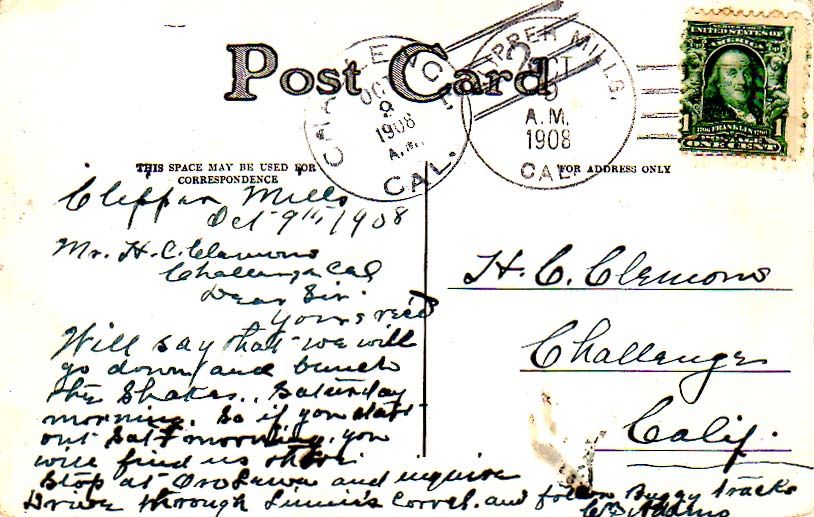 Post Card
CHALLENGE
OCT
9
1908
A.M.
CAL.
CLIPPER MILLS.
OCT
9
A.M.
1908
CAL.
UNITED STATES OF
AMERICA
1 FRANKLIN 1
POSTAGE
ONE CENT
THIS SPACE MAY BE USED FOR
CORRESPONDENCE
FOR ADDRESS ONLY
Clipper Mills
Oct 9th 1908
Mr. H. C. Clemons
Challenge Cal
Dear Sir.
Yours rec'd
Will say that we will
go down and bunch
the Shakes. Saturday
morning. So if you start
out Sat morning. you
will find us there.
Stop at and inquire
Drive through Corral. and follow Buggy tracks
Adams
H. C. Clemons
Challenge
Calif.